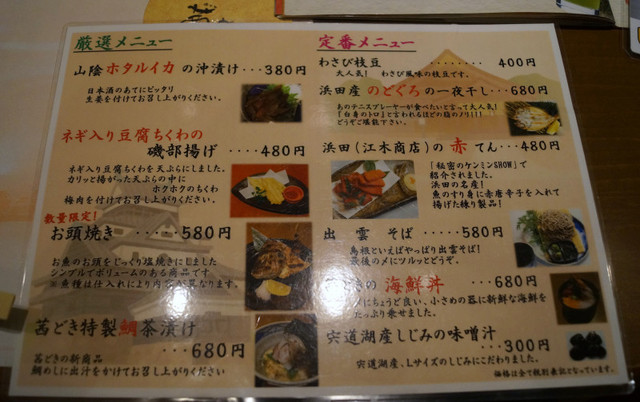 厳選メニュー
山陰ホタルイカの沖漬け・・・380円
日本酒のあてにピッタリ
生姜を付けてお召し上がりください。
ネギ入り豆腐ちくわの
磯部揚げ・・・・480円
ネギ入り豆腐ちくわを天ぷらにしました。
カリッと揚がった天ぷらの中に
ホクホクのちくわ
梅肉を付けてお召し上がりください
数量限定!
お頭焼き・・・・・580円
お魚のお頭をじっくり塩焼きにしました
シンプルでボリュームのある商品です
※魚種は仕入れにより内容が異なります。
茜どき特製鯛茶漬け
・・・680円
茜どきの新商品
鯛めしに出汁をかけてお召し上がり下さい
定番メニュー
わさび枝豆・・・・・・・・400円
大人気! わさび風味の枝豆です。
浜田産のどぐろの一夜干し・・680円
あのテニスプレーヤーが食べたいと言って大人気!
「白身のトロ」と言われるほどの脂のノリ!!!
どうぞご堪能下さい。
浜田(江木商店)の赤てん・・480円
「秘密のケンミンSHOW」で
紹介されました。
浜田の名産!
魚のすり身に赤唐辛子を入れて
揚げた練り製品!
出雲そば・・・・・580円
島根といえばやっぱり出雲そば!
最後の〆にツルッとどうぞ。
きの海鮮丼・・・・680円
〆にちょうど良い、小さめの器に新鮮な海鮮を
たっぷり乗せました。
宍道湖産しじみの味噌汁
・・・300円
宍道湖産、Lサイズのしじみにこだわりました。
価格は全て税別表記となっています。